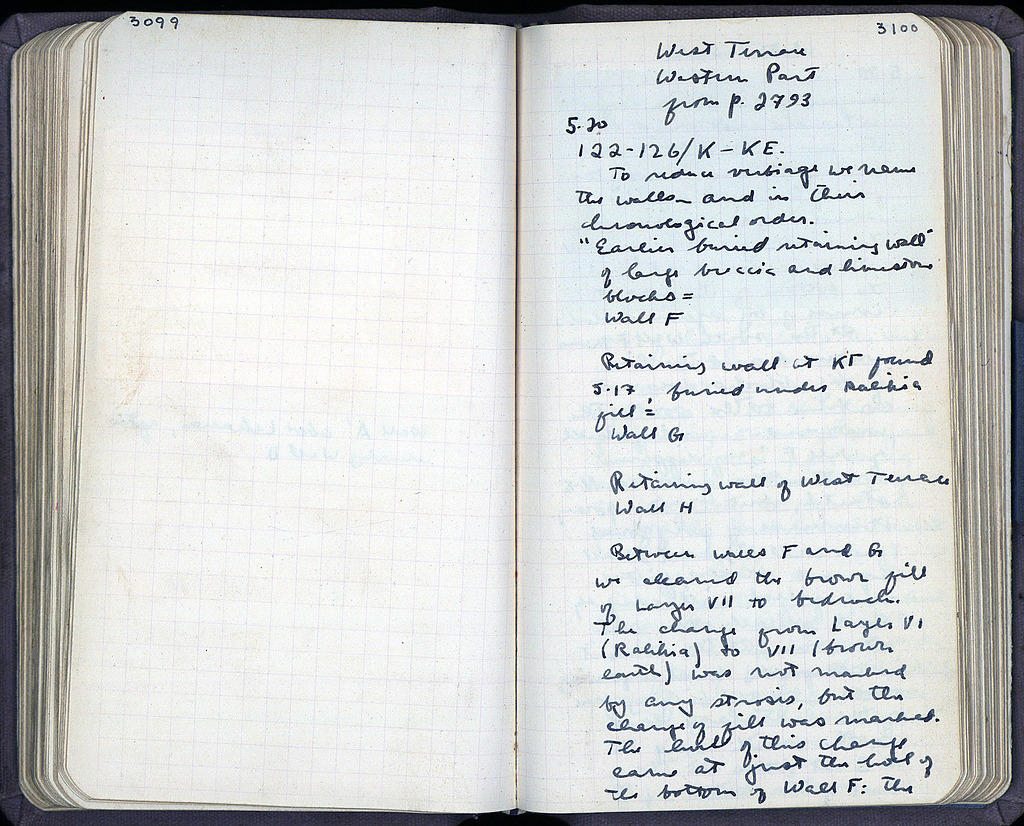 3099
3100
West Terrace
Western Part
from p. 2793
5.20
122-126/K-KE.
To reduce verbiage we name
the walls and in their
chronological order.
"Earlier buried retaining wall"
of large breccia and limestone
blocks =
Wall F
Retaining wall at KΓ found
5.17, buried under Ralikia
fill =
Wall G
Retaining wall of West Terrace
Wall H
Between walls F and G
we cleaned the brown fill
of Layer VII to bedrock.
The change from Layer VI
(Ralikia) to VII (brown
earth) was not marked
by any strosis, but the
change of fill was marked.
The level of this change
came at just the level of
the bottom of Wall F: the